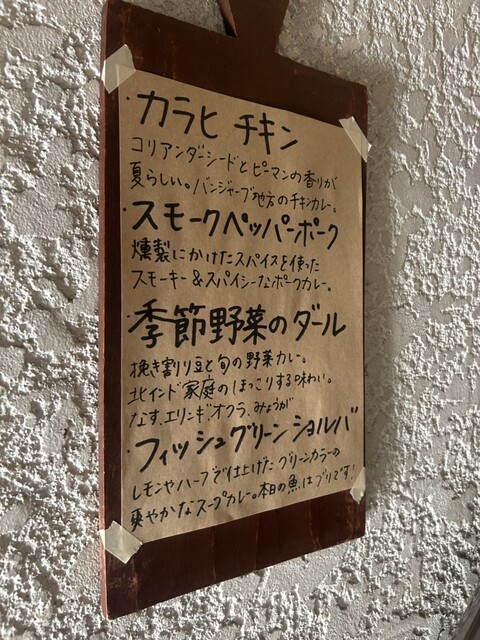 ・カラヒ チキン
コリアンダーシードとピーマンの香りが
夏らしい。パンジャーブ地方のチキンカレー。
・スモークペッパーポーク
燻製にかけたスパイスを使った
スモーキー&スパイシーなポークカレー。
・季節野菜のダール
挽き割り豆と旬の野菜カレー。
北インド家庭のほっこりする味わい。
なす、エリンギ、オクラ、みょうが
・フィッシュグリーンショルバ
レモンやハーブで仕上げたグリーンカラーの
爽やかなスープカレー。本日の魚はブリです!